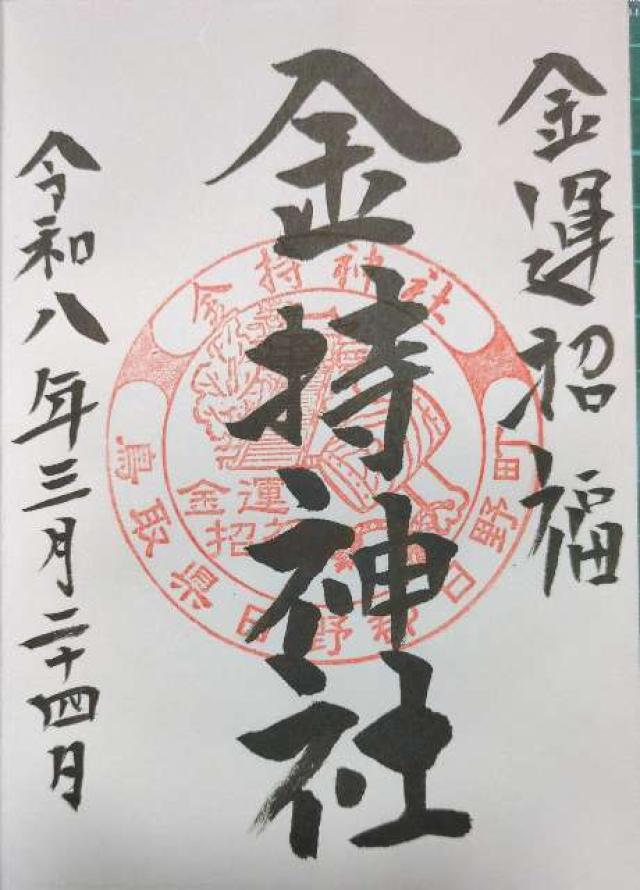 金運招福
金持神社
令和八年三月二十四日
金持神社
金運
招
鳥取県日野郡日野町